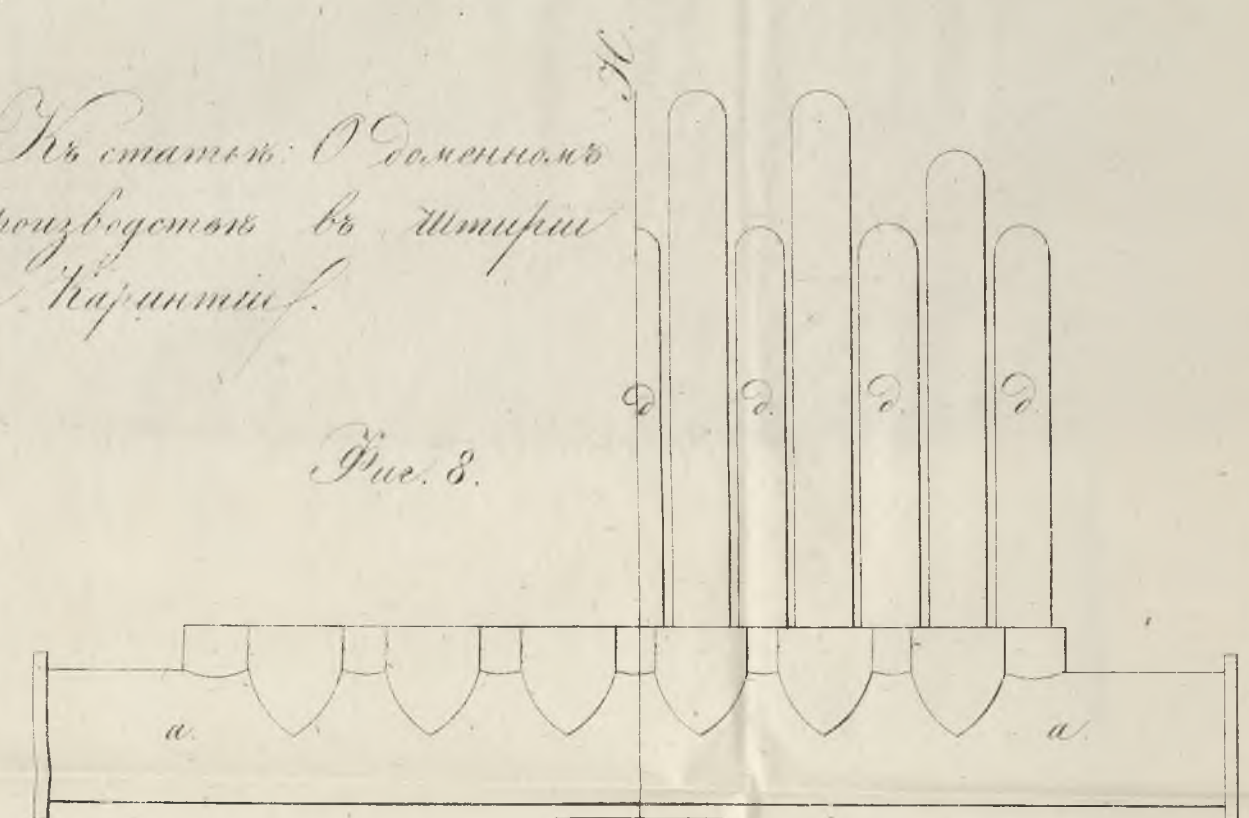 Къ статьѣ: О доменномъ
роизводствѣ въ Штиріи
Каринтіи.
Н
д д. д. д.
Фиг. 8.
а. а.